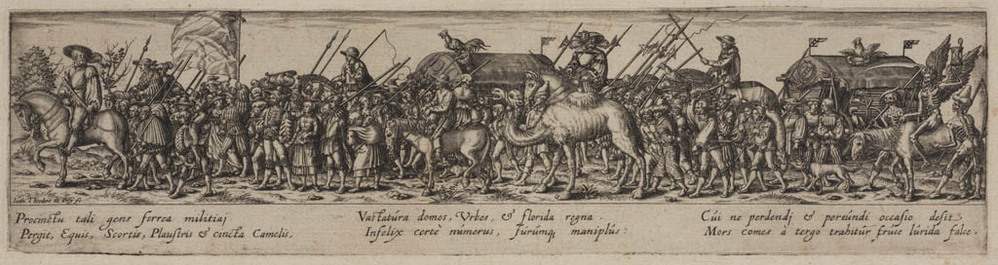 Ioan Theodore de Bry fe
Procinctu tali gens ferrea militiaj
Pergit, Equis, Scortis, Plaustris & cincta Camelis.
Vastatúra domos, Vrbes, & florida regna.
Infelix certè númerus, fúrúmq; maniplús:
Cúi ne perdendj & pereúndi occasio desit
Mors comes à tergo trahitúr frúce lúrida falce.